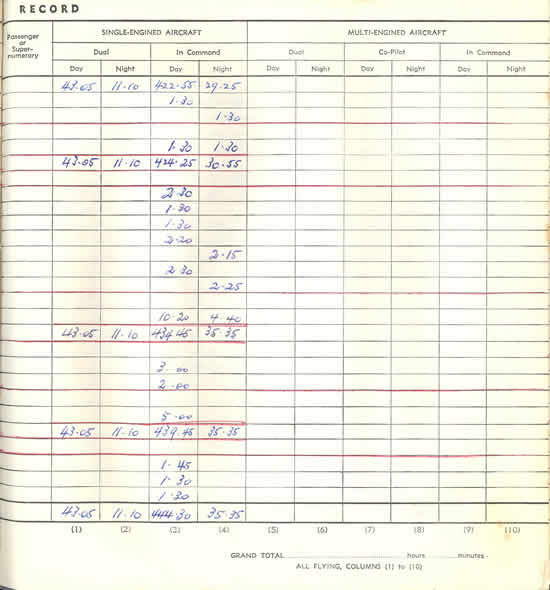 RECORD
Passenger or Super-numerary SINGLE-ENGINED AIRCRAFT MULTI-ENGINED AIRCRAFT
Dual In Command Dual Co-Pilot In Command
Day Night Day Night Day Night Day Night Day Night
43.05 11.10 422.55 29.25
1.30
1.30
1.30 1.30
43.05 11.10 424.25 30.55
2.30
1.30
1.30
2.20
2.15
2.30
2.25
10.20 4.40
43.05 11.10 434.45 35.35
3.00
2.00
5.00
43.05 11.10 439.45 35.35
1.45
1.30
1.30
43.05 11.10 444.30 35.35
(1) (2) (3) (4) (5) (6) (7) (8) (9) (10)
GRAND TOTAL hours minutes.
ALL FLYING, COLUMNS (1) to (10)